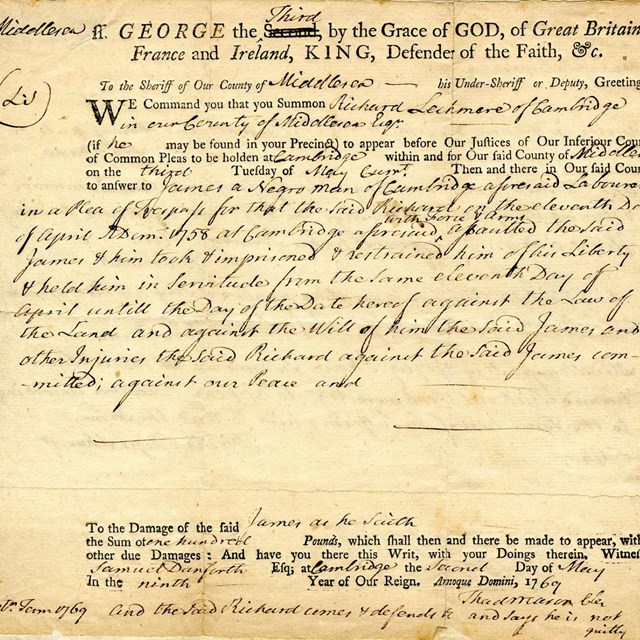 Middlesex ss. GEORGE the Second, Third by the Grace of GOD, of Great Britain
France and Ireland, KING, Defender of the Faith, &c.
To the Sheriff of Our County of Middlesex his Under-Sheriff or Deputy, Greeting
(LS)
WE Command you that you Summon Richard Lechmere of Cambridge
in our County of Middlesex Esqr
(if he may be found in your Precinct) to appear before Our Justices of Our Inferiour Cou
of Common Pleas to be holden at Cambridge within and for Our said County of Middle
on the third Tuesday of May Currt. Then and there in Our said Cou
to answer to James a Negro man of Cambridge aforesaid Laboure
in a Plea of Trespass for that the said Richard on the eleventh Da
of April A Dom: 1758 at Cambridge aforesaid with force & arms assaulted the said
James & him took & imprisoned & restrained him of his Liberty
& held him in Servitude from the same eleventh Day of
April untill the Day of the Date hereof against the Law of
the Land and against the Will of him the said James and
other Injuries the said Richard against the said James com-
-mitted; against our Peace and
To the Damage of the said James as he saith
the Sum of one hundred Pounds, which shall then and there be made to appear, with
other due Damages: And have you there this Writ, with your Doings therein. Witness
Samuel Danforth Esq; at Cambridge the second Day of May
In the ninth Year of Our Reign. Annoque Domini, 1769
Term 1769 and the said Richard comes & defends &c Thad Mason Cler
and says he is not
guilty